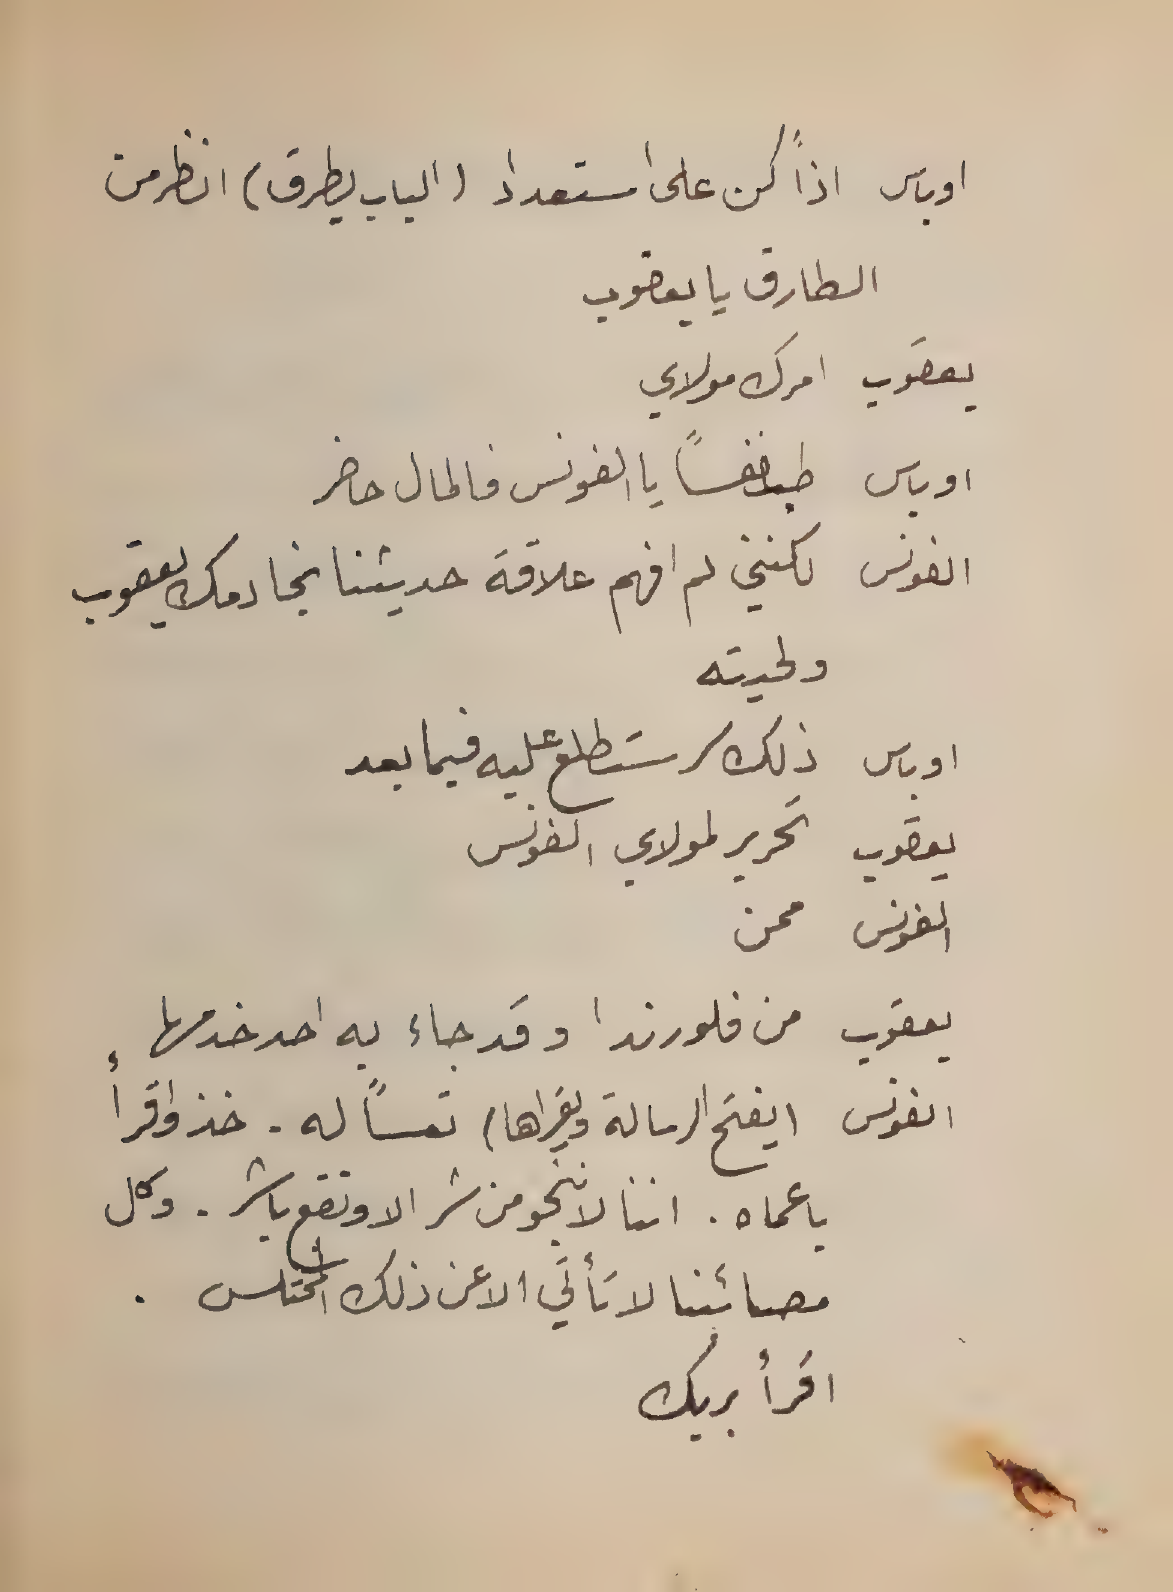 اوباس اذاً كن على استعداد (الباب يطرق) انظر من
الطارق يا يعقوب
يعقوب امرك مولاي
اوباس طب نفساً يا الفونس فالمال حاضر
الفونس لكنني لم افهم علاقة حديثنا بخادمك يعقوب
ولحيته
اوباس ذلك سر ستطلع عليه فيما بعد
يعقوب تحرير لمولاي الفونس
الفونس ممن
يعقوب من فلورندا وقد جاء به احد خدمها
الفونس (يفتح الرسالة ويقراها) تعساً له . خذ واقرأ
يا عماه . اننا لا ننجو من شر الا ونقع باشر . وكل
مصائبنا لا تأتي الا عن ذلك المختلس .
اقرأ بربك